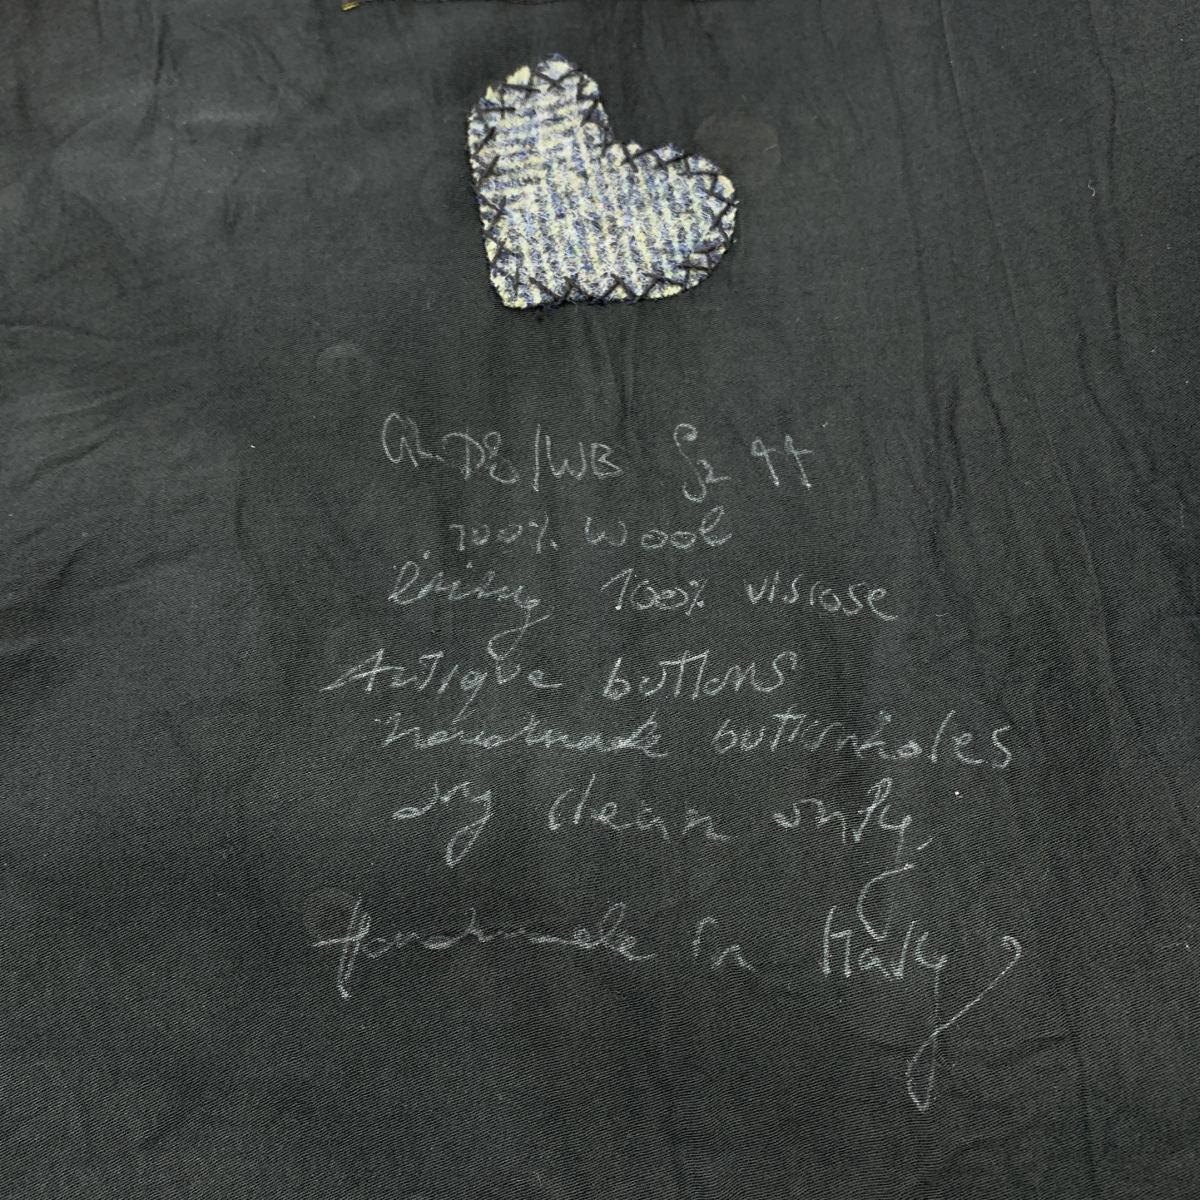 /WB Sz 44
100% wool
lining 100% viscose
Antique buttons
handmade buttonholes
dry clean only
Handmade in Italy